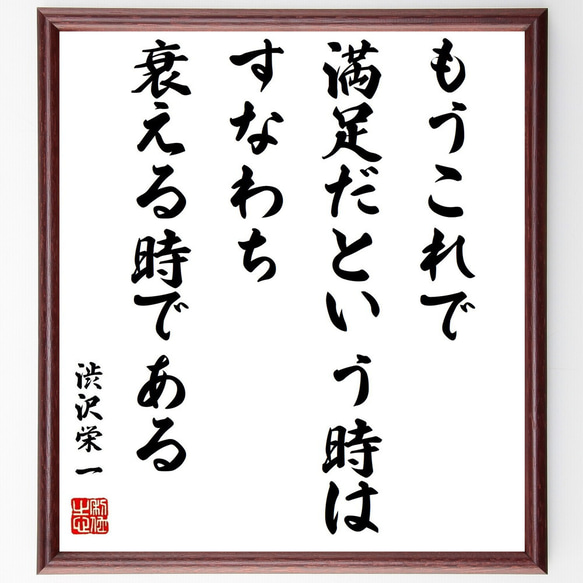 もうこれで
満足だという時は
すなわち
衰える時である
渋沢栄一